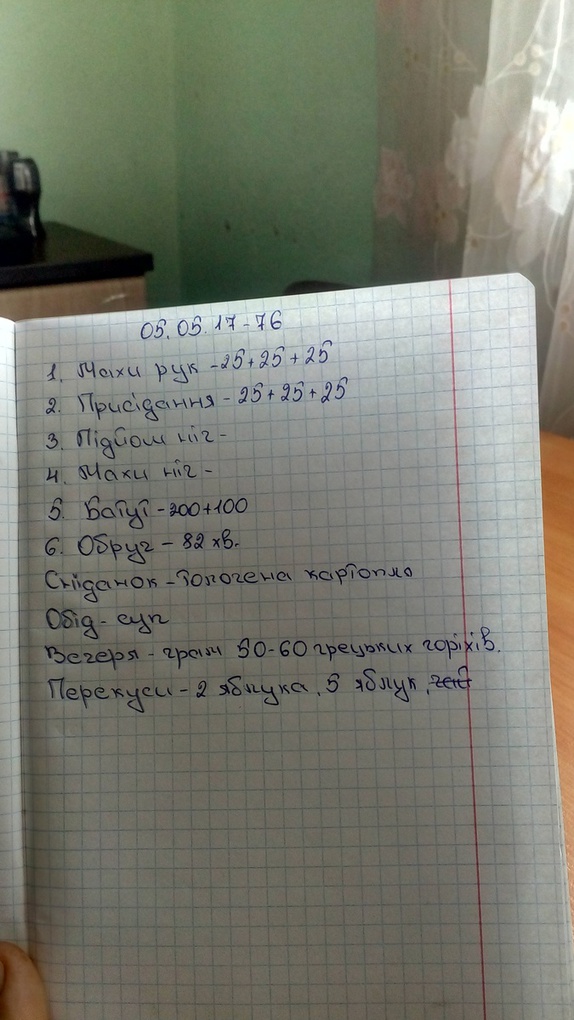 05.05.17-76
1. Махи рук -25+25+25
2. Присідання - 25+25+25
3. Підйом ніг -
4. Махи ніг -
5. Батут - 200+100
6. Обруч - 32 хв.
Сніданок - Толочена картопля
Обід - суп
Вечеря - грам 50-60 грецьких горіхів.
Перекуси - 2 яблука, 5 яблук,